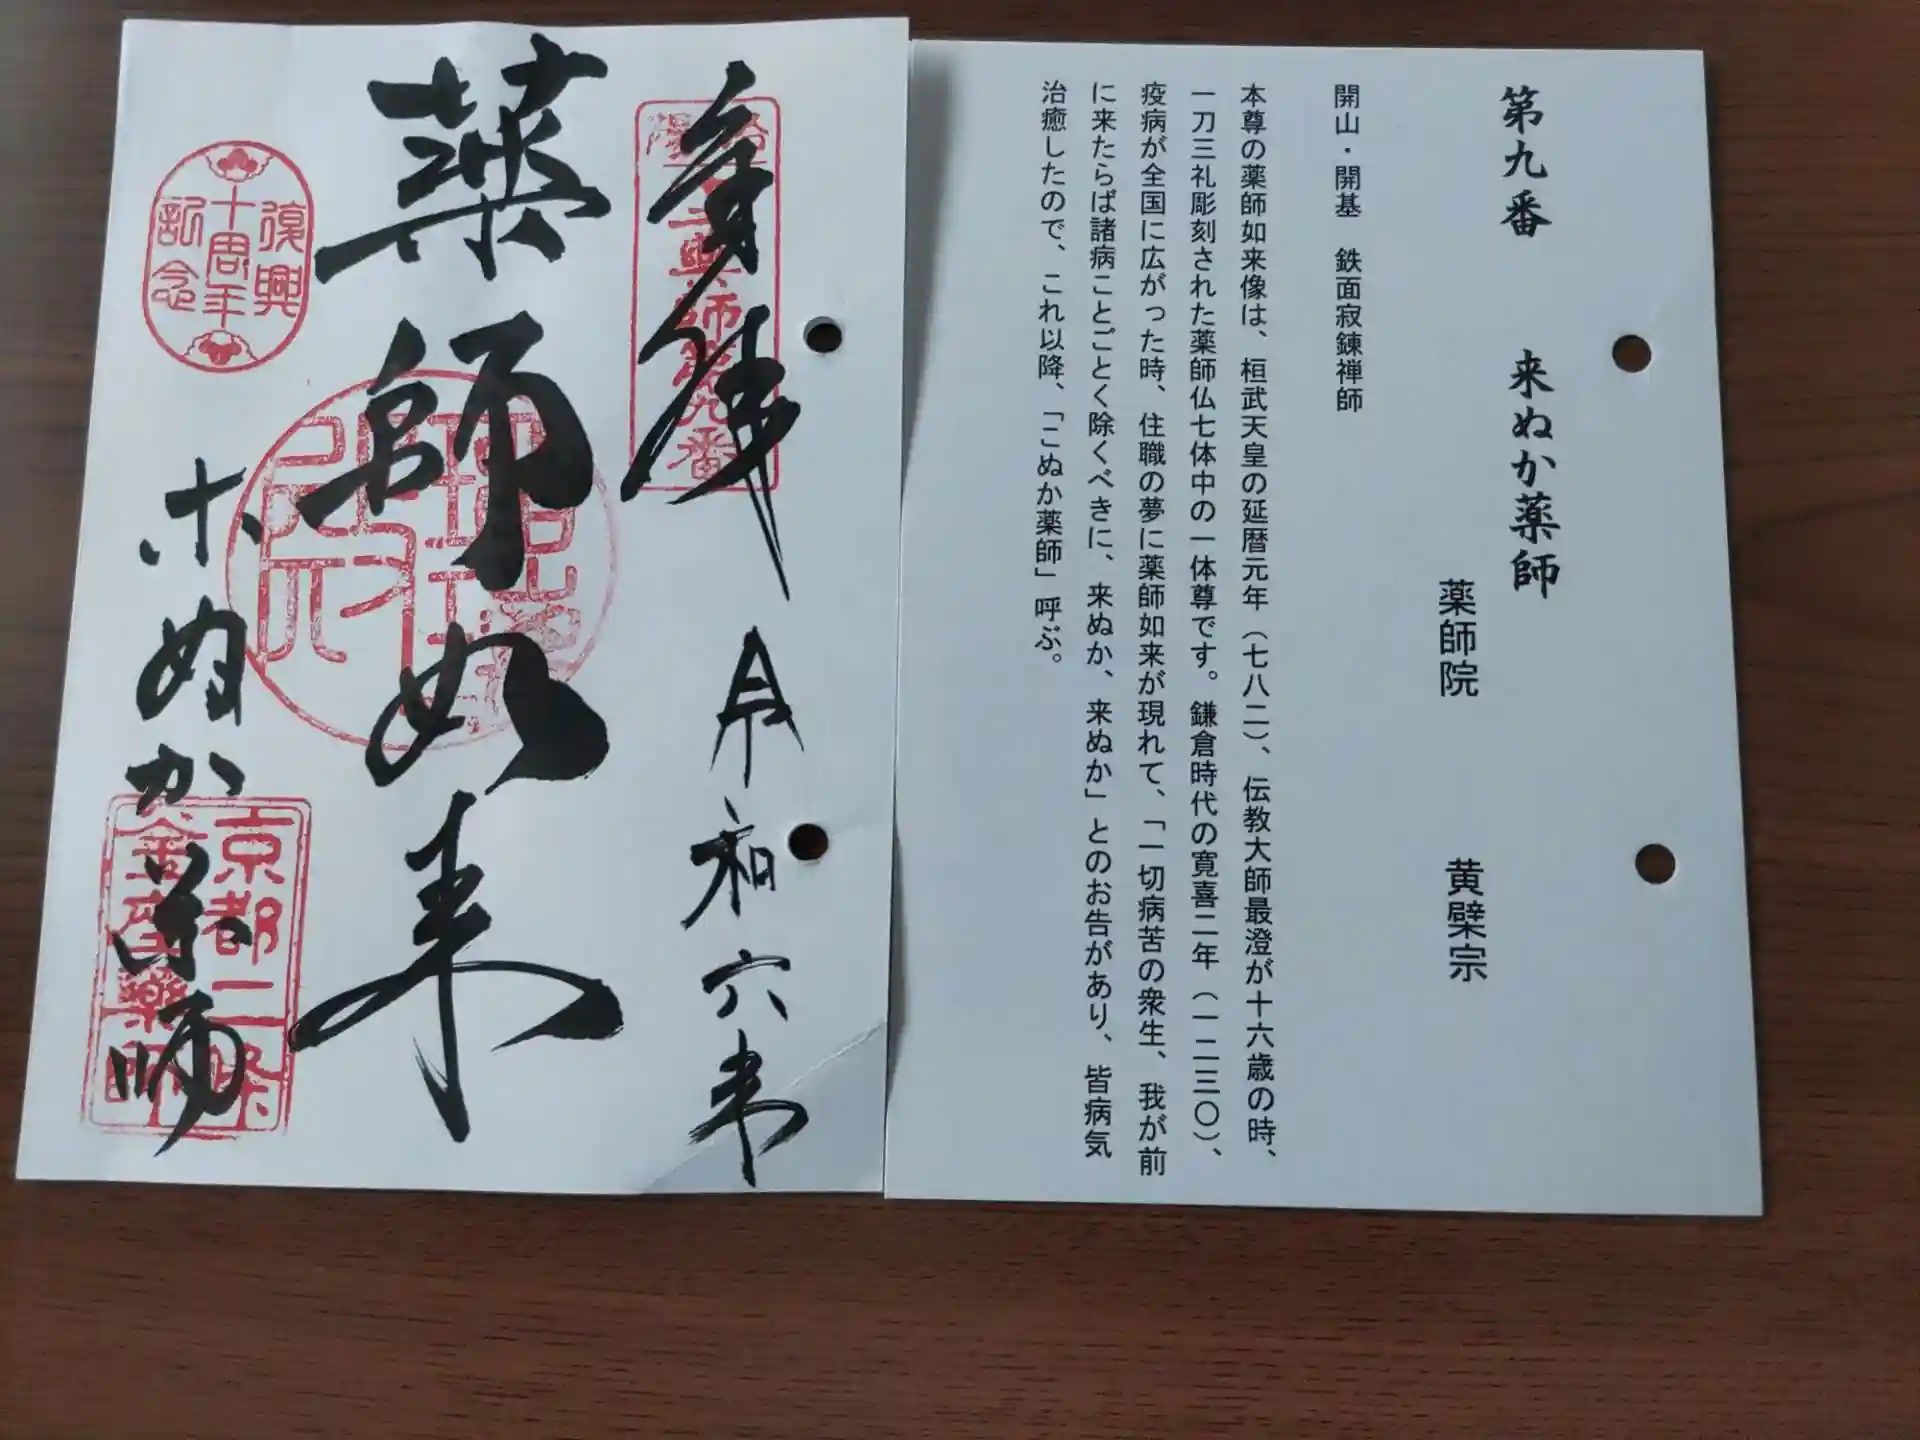 第九番　来ぬか薬師
薬師院　黄檗宗
開山・開基　鉄面寂錬禅師
本尊の薬師如来像は、桓武天皇の延暦元年（七八二）、伝教大師最澄が十六歳の時、
一刀三礼彫刻された薬師仏七体中の一体尊です。鎌倉時代の寛喜二年（一二三〇）、
疫病が全国に広がった時、住職の夢に薬師如来が現れて、「一切病苦の衆生、我が前
に来たらば諸病ことごとく除くべきに、来ぬか、来ぬか」とのお告があり、皆病気
治癒したので、これ以降、「こぬか薬師」呼ぶ。
奉拝　令和六年
師第九番
薬師如来
復興
十周年
記念
こぬか薬師
京都二条
薬師